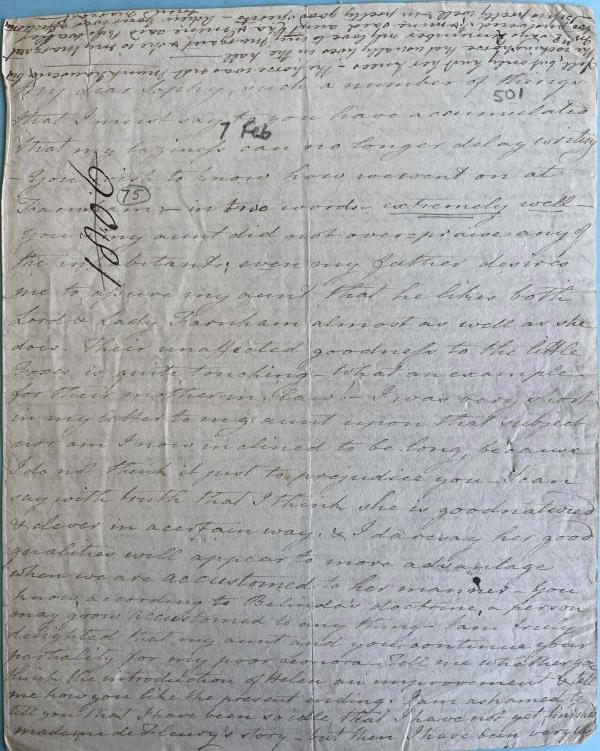 My dear Sophy, such a number of things
501
that I must say to you have accumulated
7 Feb
that my laziness can no longer delay writing
- You wish to know how we went on at
75
1806
Farnham - in two words - extremely well -
You & my aunt did not over-praise any of
the inhabitants; even my father desires
me to assure my aunt that he likes both
Lord & Lady Farnham almost as well as she
does. Their unaffected goodness to the little
Foxes is quite touching - What an example
for their mother in law. - I was very short
in my letter to my aunt upon that subject
nor am I now inclined to be long, because
I do not think it just to prejudice you - I can
say with truth that I think she is goodnatured
& clever in a certain way. & I daresay her good
qualities will appear to more advantage
when we are accustomed to her manner - You
know according to Belinda's doctrine, a person
may grow accustomed to any thing - I am truly
delighted that my aunt and you continue your
partiality for my poor Leonora - Tell me whether you
think the introduction of Helen an improvement & tell
me how you like the present ending. I am ashamed to
tell you that I have been so idle that I have not yet finished
madame de Fleury's story - but then I have been very